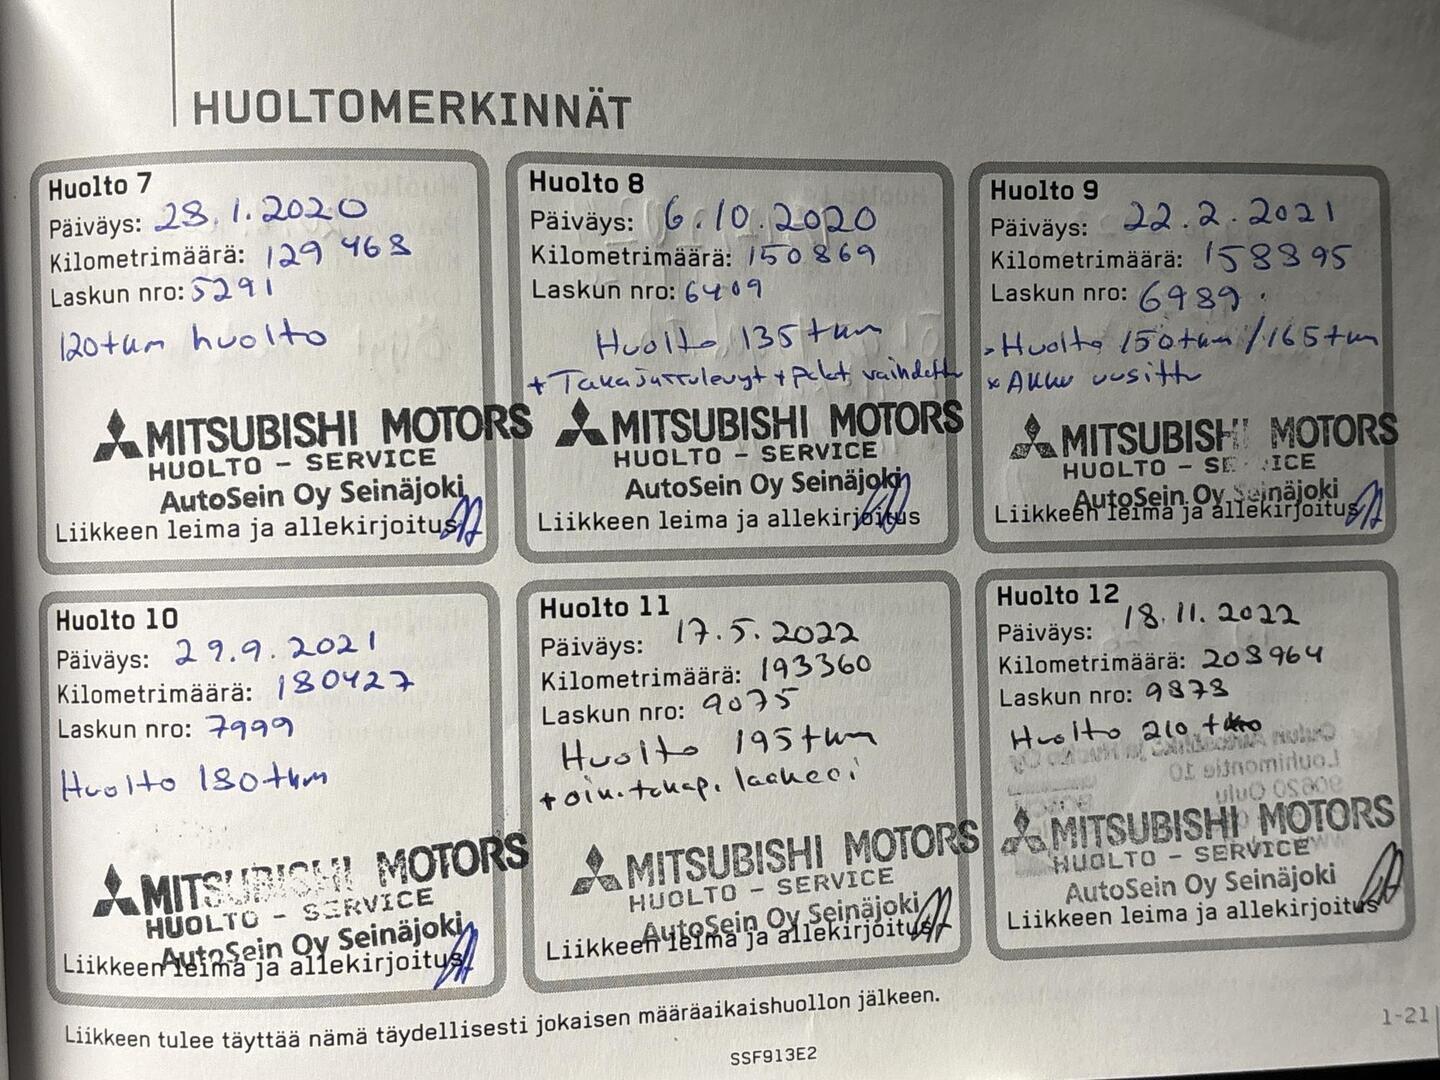 HUOLTOMERKINNÄT
Huolto 7
Päiväys: 28.1.2020
Kilometrimäärä: 129 468
Laskun nro: 5291
120tkm huolto
MITSUBISHI MOTORS
HUOLTO - SERVICE
AutoSein Oy Seinäjoki
Liikkeen leima ja allekirjoitus
Huolto 8
Päiväys: 6.10.2020
Kilometrimäärä: 150869
Laskun nro: 6409
Huolto 135tkm
+ Takajarrulevyt + palat vaihdettu
MITSUBISHI MOTORS
HUOLTO - SERVICE
AutoSein Oy Seinäjoki
Liikkeen leima ja allekirjoitus
Huolto 9
Päiväys: 22.2.2021
Kilometrimäärä: 158895
Laskun nro: 6989
Huolto 150tkm / 165tkm
x Akku uusittu
MITSUBISHI MOTORS
HUOLTO - SERVICE
AutoSein Oy Seinäjoki
Liikkeen leima ja allekirjoitus
Huolto 10
Päiväys: 29.9.2021
Kilometrimäärä: 180427
Laskun nro: 7999
Huolto 180tkm
MITSUBISHI MOTORS
HUOLTO - SERVICE
AutoSein Oy Seinäjoki
Liikkeen leima ja allekirjoitus
Huolto 11
Päiväys: 17.5.2022
Kilometrimäärä: 193360
Laskun nro: 9075
Huolto 195tkm
+ oik. takap. laakeri
MITSUBISHI MOTORS
HUOLTO - SERVICE
AutoSein Oy Seinäjoki
Liikkeen leima ja allekirjoitus
Huolto 12
Päiväys: 18.11.2022
Kilometrimäärä: 208964
Laskun nro: 9878
Huolto 210
MITSUBISHI MOTORS
HUOLTO - SERVICE
AutoSein Oy Seinäjoki
Liikkeen leima ja allekirjoitus
Liikkeen tulee täyttää nämä täydellisesti jokaisen määräaikaishuollon jälkeen.
1-21
SSF913E2